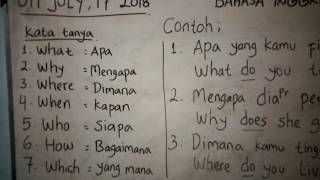 JULY, 17 2018
BAHASA
Kata tanya
1. What = Apa
2. Why = Mengapa
3. Where = Dimana
4. When = kapan
5. Who = Siapa
6. How = Bagaimana
7. Which = yang mana
Contoh :
1. Apa yang kamu
What do you
2. Mengapa dia pr
Why does she
3. Dimana kamu
Where do you